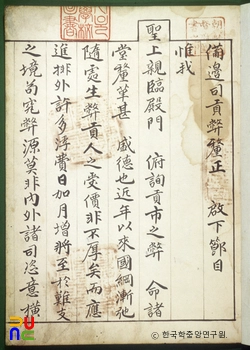 備邊司貢弊釐正 啟下節目
惟我
聖上親臨殿門 俯詢貢市之弊 命諸
堂釐革甚 盛德也近年以來國綱漸弛
隨處生弊貢人之受價非不厚矣而應
進排外許多浮費日加月增將至於難支
之境苟究弊源莫非內外諸司恣意橫
© 한국학중앙연구원